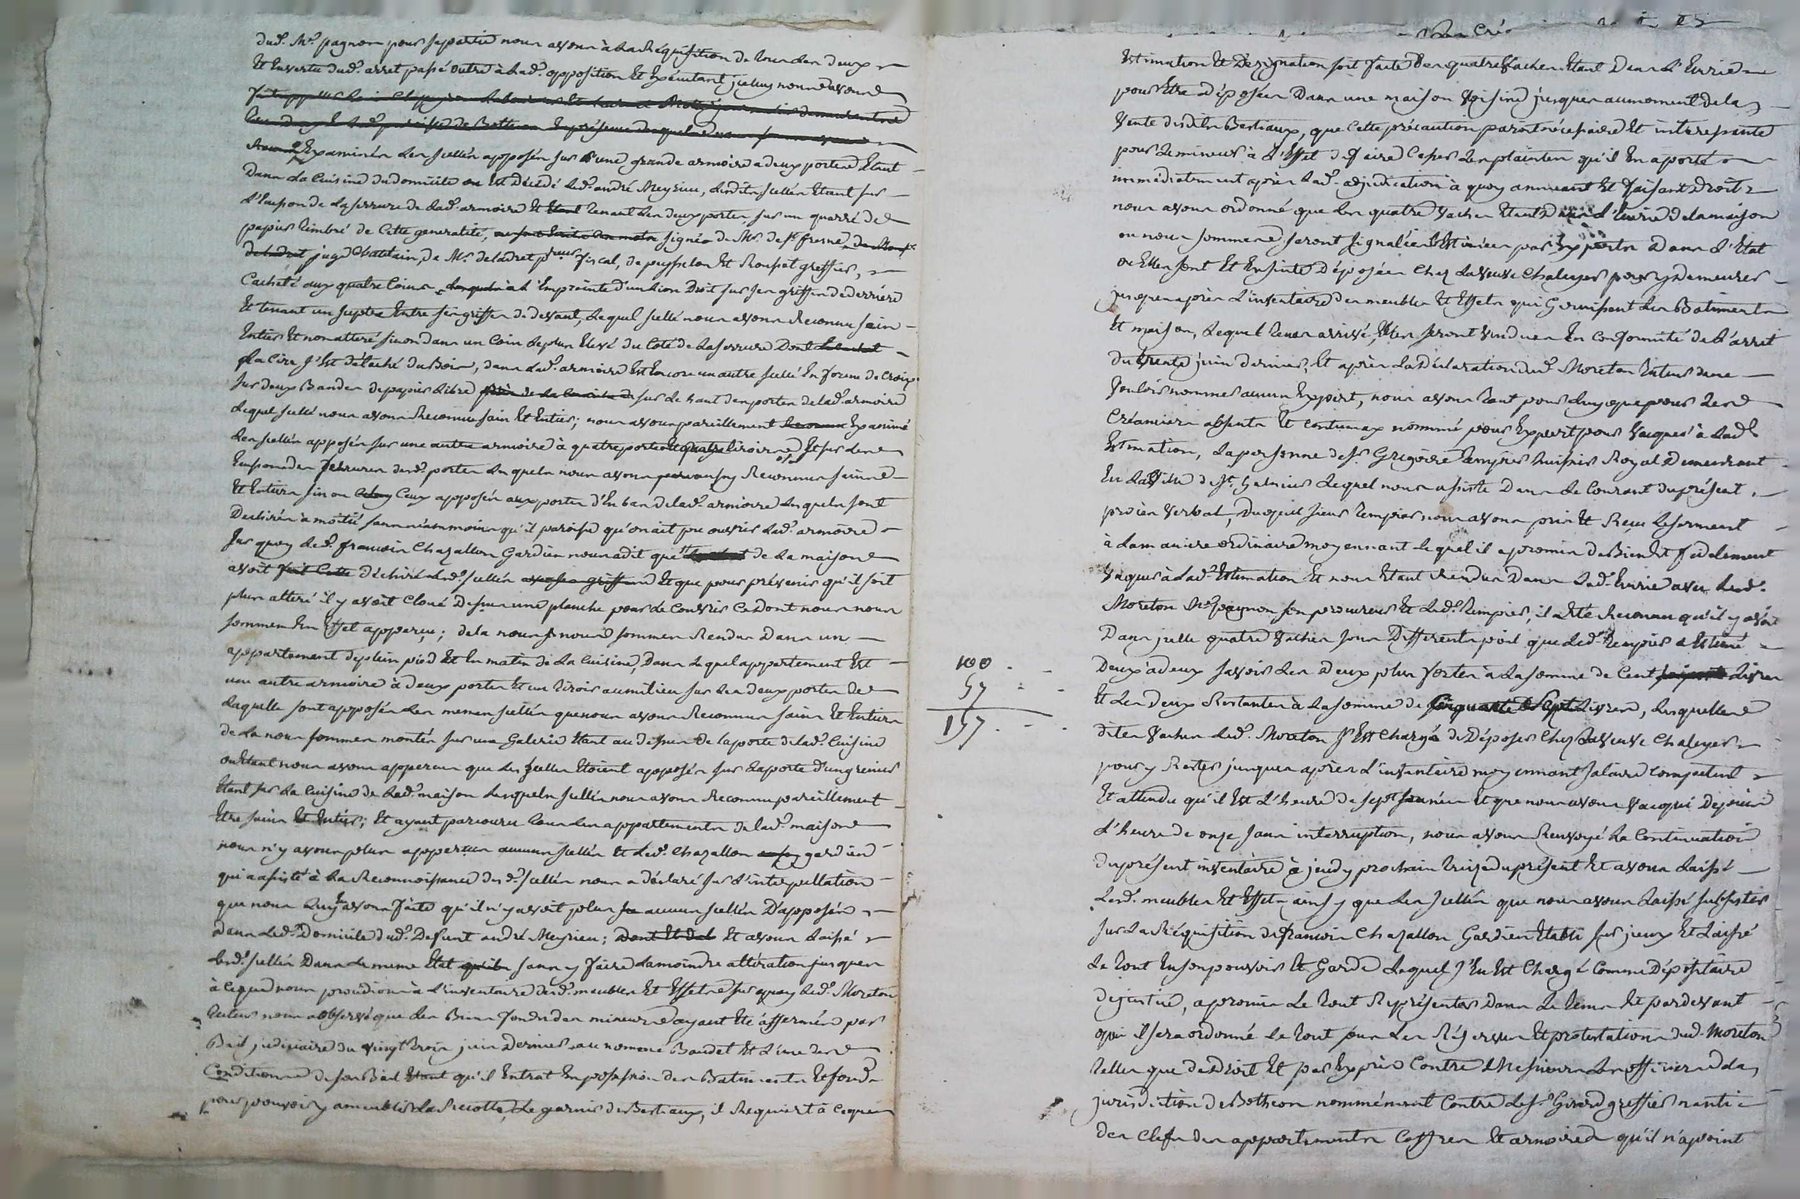 dud. Mr. pagnon pour sa partie nous avons à la Réquisition de tous les deux
Et En vertu dud. arret passé outre à lad. opposition Et Executant jceluy nous avons
Examinés les scellés apposés sur une grande armoire a deux portes Etant
Dans La Cuisine du domicile ou Est Décédé led. andré Meyrieu, lesdits scellés Etant sur
L'Ecusson de la serrure de lad. armoire et tenant les deux portes sur un quarré de
papier timbré de Cette generalité, signés de Mr. de st. fresne
juge Chatelain, de Mr. deladret fiscal, de peysselon Et Rouset greffier,
Cacheté aux quatre Coins à L'Empreinte d'un Lion Droit sur ses griffes de derriere
Et tenant un sceptre Entre ses griffes de devant, Lequel scellé nous avons Reconnu sain
Entier Et non alteré sinon dans un Coin Levé du Coté de la serrure Dont
La Cire s'Est détaché du Bois, dans lad. armoire Est Encore un autre scellé En forme de Croix
sur deux Bandes de papier Libre sur Le haut des portes de lad. armoire
Lequel scellé nous avons Reconnu sain Et Entier; nous avons pareillement Examiné
Les scellés apposés sur une autre armoire à quatre portes Et quatre tiroirs Et sur les
Ecussons des serrures desd. portes Lesquels nous avons Reconnus sains
Et Entiers sinon Ceux apposés aux portes d'En bas de lad. armoire Lesquels sont
Dechirés a moitié sans neanmoins qu'il paroisse qu'on ait pu ouvrir lad. armoire
sur quoy led. françois Chazallon Gardien nous a dit que de La maison
avoit déchiré Lesd. scellés Et que pour prévenir qu'il soit
plus alteré il y avoit Cloué Dessus une planche pour Le Couvrir Ce dont nous nous
sommes En Effet apperçu; de la nous nous sommes Rendus Dans un
appartement de plein pied Et En matin de La Cuisine, Dans Lequel appartement Est
une autre armoire à deux portes Et un tiroir au milieu sur Les deux portes de
Laquelle sont apposés Les memes scellés que nous avons Reconnus sains Et Entiers
de La nous sommes montés sur une Galerie Etant au dessus de La porte de lad. Cuisine
ou Etant nous avons apperçu que Les scellés Etoient apposés sur La porte d'un grenier
Etant sur La Cuisine de lad. maison Lesquels scellés nous avons Reconnu pareillement
Etre sains Et Entiers; Et ayant parcouru tous Les appartements de lad. maison
nous n'y avons plus apperçu aucuns scellés Et led. Chazallon gardien
qui a assisté à La Reconnoissance desd. scellés nous a déclaré sur L'interpellation
que nous Luy avons faite qu'il n'y avoit plus aucuns scellés D'apposés
dans led. Domicile dud. Defunt andré Meyrieu; Et avons Laissé
Lesd. scellés Dans Le meme Etat sans y faire La moindre altération jusques
à Ce que nous procedions à L'inventaire desd. meubles Et Effets sur quoy led. Moreton
tuteur nous a observé que Les Biens fonds des mineurs ayant Eté affermés par
Bail judiciaire du vingt trois juin Dernier au nommé Baudet Et L'une des
Conditions de son Bail Etant qu'il Entrat En possession des Batiments Et fonds
pour pouvoir y ameubler La Recolte, Le garnir de Bestiaux, il Requiert à Ce que
Estimation Et Désignation soit faite Des quatre Vaches Etant Dans L'Ecurie
pour Etre déposées Dans une maison voisine jusques au moment de la
Vente desdits Bestiaux, que Cette précaution paroit nécessaire Et interessante
pour Le mineur à L'Effet de faire Cesser Les plaintes qu'il En a porté
immédiatement après lad. adjudication à quoy annuant Et faisant Droit
nous avons ordonné que Les quatre Vaches Etants dans L'Ecurie de la maison
ou nous sommes seront signalées Estimées par Experts Dans L'Etat
ou Elles sont Et Ensuite Déposées Chez La veuve Chaleyer pour y demeurer
jusques après L'inventaire des meubles Et Effets qui Garnissent Les Batiments
Et maison, Lequel tems arrivé Elles seront vendues En Conformité de L'arrêt
du trente juin dernier, Et après La Déclaration dud. Moreton tuteur de ne
vouloir nommer aucun Expert, nous avons tant pour Luy que pour Les
Créanciers absents Et Contumax nommé pour Expert pour vaquer à Lad.
Estimation, La personne de sr. Gregoire tempier huissier Royal Demeurant
En La ville de st. Galmier Lequel nous assiste Dans Le Courant du présent
procès verbal, Duquel sieur tempier nous avons pris Et Reçu Le serment
à La maniere ordinaire moyennant Lequel il a promis de Bien Et fidelement
vaquer à Lad. Estimation Et nous Etant Rendus Dans Lad. Ecurie avec Led.
Moreton Mr. pagnon son procureur Et Led. tempier, il a Eté Reconnu qu'il y avoit
Dans jcelle quatre Vaches sous Différents poil que Led. tempier a Estimé
Deux à deux savoir Les Deux plus fortes à La somme de Cent Livres
Et Les deux Restantes à La somme de Cinquante Sept Livres, Lesquelles
dites Vaches Led. Moreton s'Est Chargé de Déposer Chez La veuve Chaleyer
pour y Rester jusques après L'inventaire moyennant salaire Compétent
Et attendu qu'il Est L'heure de sept sonnées Et que nous avons vacqué Depuis
L'heure de onze sans interruption, nous avons Renvoyé La Continuation
du présent inventaire à jeudy prochain treize du présent Et avons Laissé
Lesd. meubles Et Effets ainsy que Les scellés que nous avons Laissé subsister
sur La Réquisition de françois Chazallon Gardien Etabli sur jceux Et Laissé
Le tout En son pouvoir Et Garde Lequel s'En Est Chargé Comme Dépositaire
de justice, a promis Le tout Représenter Dans Le tems Et pardevant
qui il sera ordonné Le tout sous Les Réserves Et protestations dud. Moreton
telles que de Droit Et par Exprès Contre Messieurs Les officiers de la
jurisdiction de Botheon nommément Contre Le sr. Girard greffier nanti
des Clefs des appartements Coffres Et armoires qu'il n'a point
100
57
157